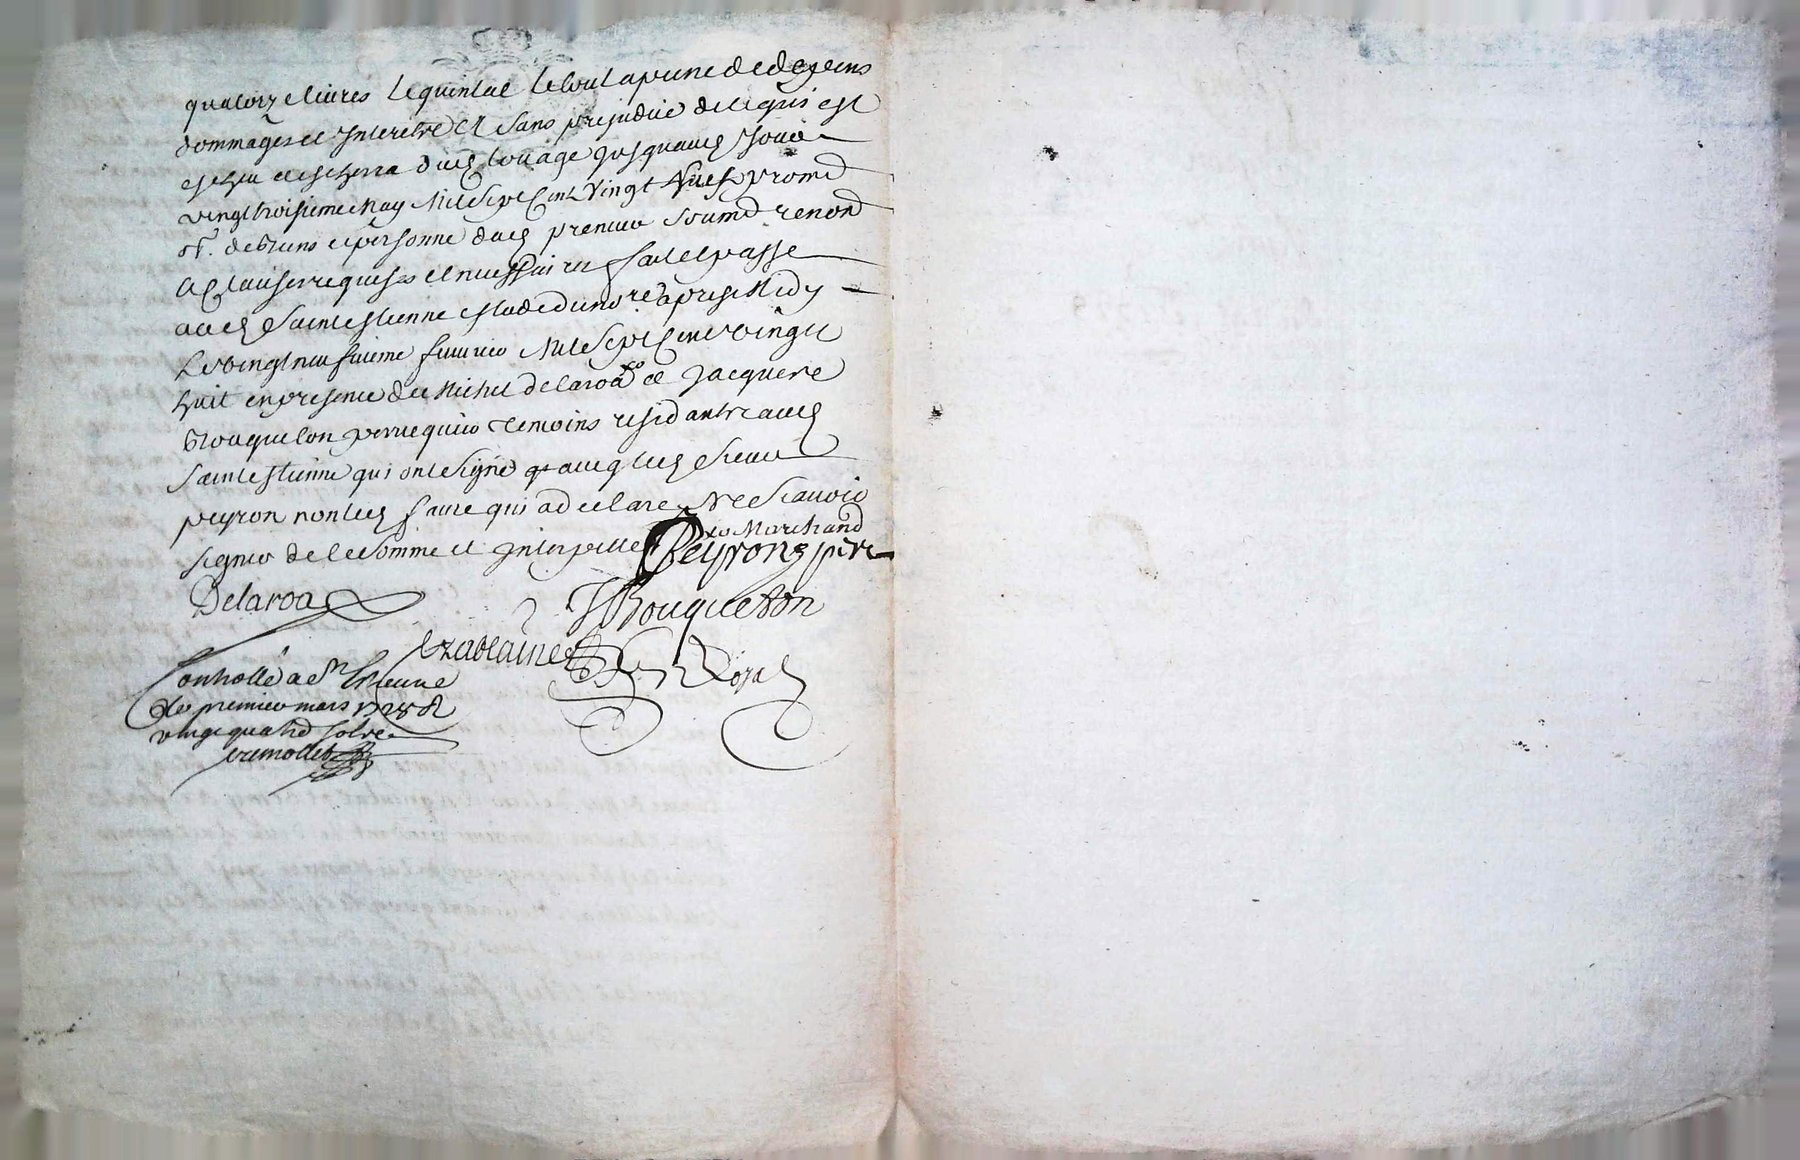 quatorze livres le quintal le tout a peine de depens
dommages et Interetz Et sans prejudice de ce qui est
escheu et escherra dud louage jusquaud jour
vingt troisieme may Mil Sept Cent Vingt huit promet
obt. de biens et personne dud premier soumis renond
a clauses requises et necessaires fait et passe
aud Saint Estienne estude du no.re apres Midy
Le vingt neufvieme fevrier Mil Sept Cent vingt
huit en presence de Michel Delaroa et Jacques
Bouqueton perruquier temoins residants aud
Saint Estienne qui ont signe avec led Sieur
peyron non led faure qui a declare ne Scavoir
signer de ce Somme et Interpelle
Peyron pere Marchand
Delaroa
J Bouqueton
No.re Royal
Controlle a St Etienne
le premier mars 1728 R
vingt quatre sols
tremollet